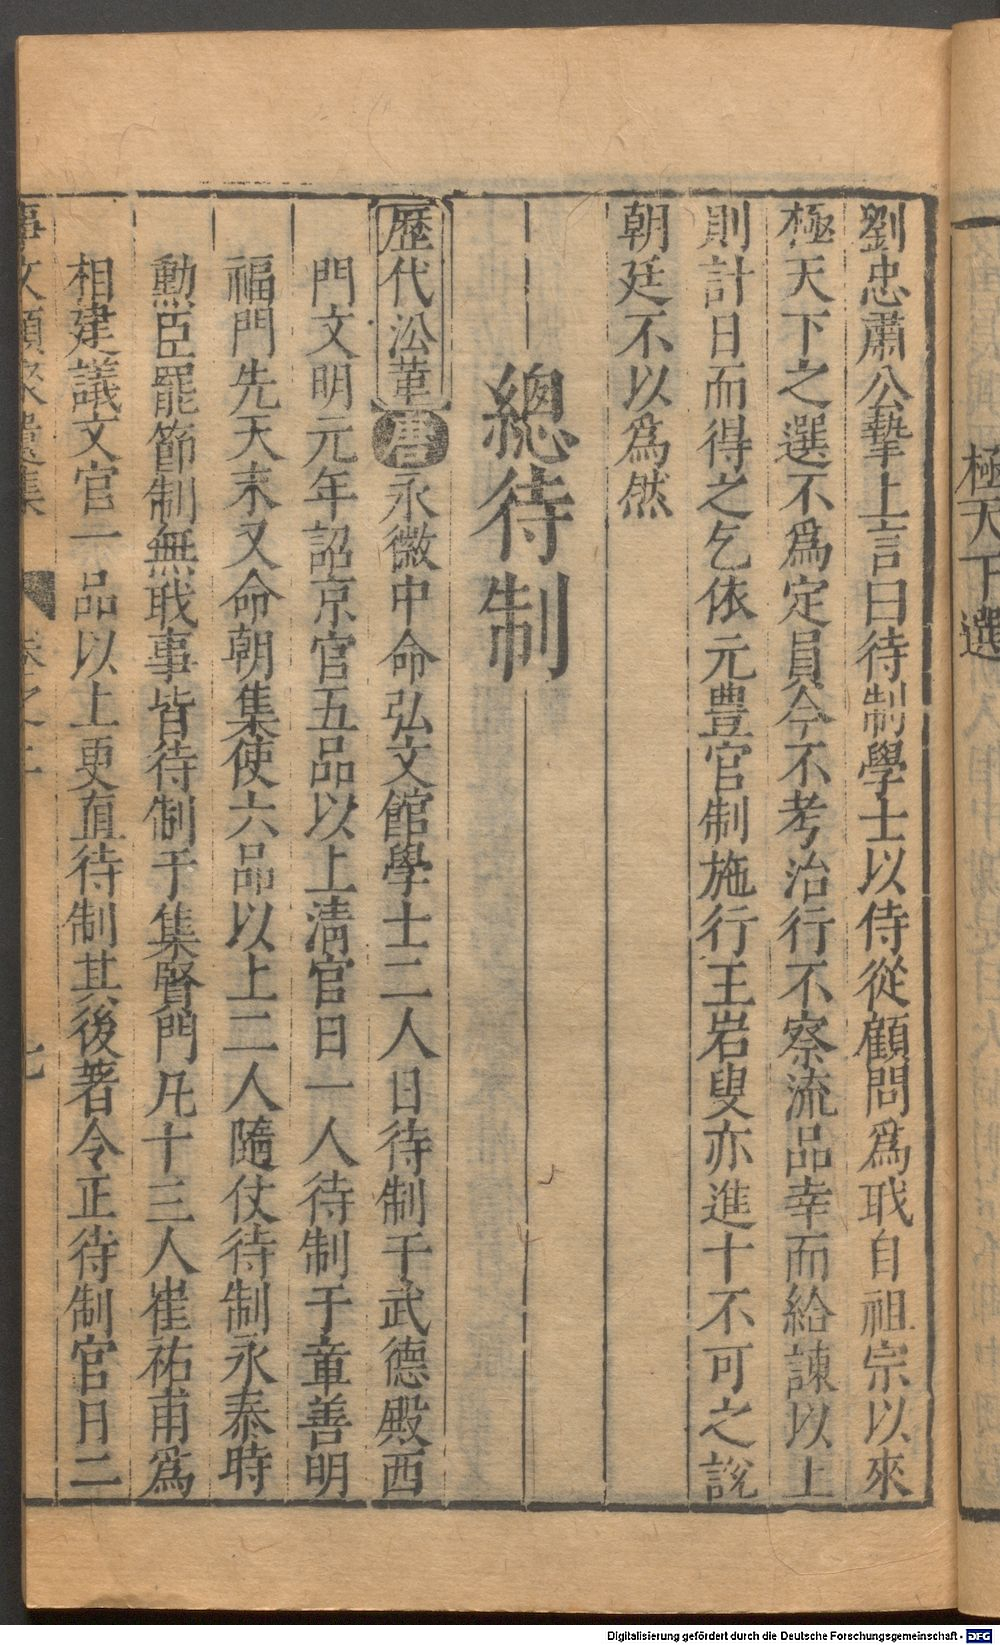 極天下選
劉忠肅公摯上言曰待制學士以侍從顧問爲職自祖宗以來
極天下之選不爲定員今不考治行不察流品幸而給諫以上
則計日而得之乞依元豊官制施行王岩叟亦進十不可之說
朝廷不以爲然
總待制
歷代沿革唐永徽中命弘文館學士二人日待制于武德殿西
門文明元年詔京官五品以上淸官日一人待制于章善明
福門先天末又命朝集使六品以上二人隨仗待制永泰時
勳臣罷節制無職事皆待制于集賢門凡十三人崔祐甫爲
相建議文官一品以上更直待制其後著令正待制官日二
事文類聚遺集 卷之二 七
Digitalisierung gefördert durch die Deutsche Forschungsgemeinschaft - DFG